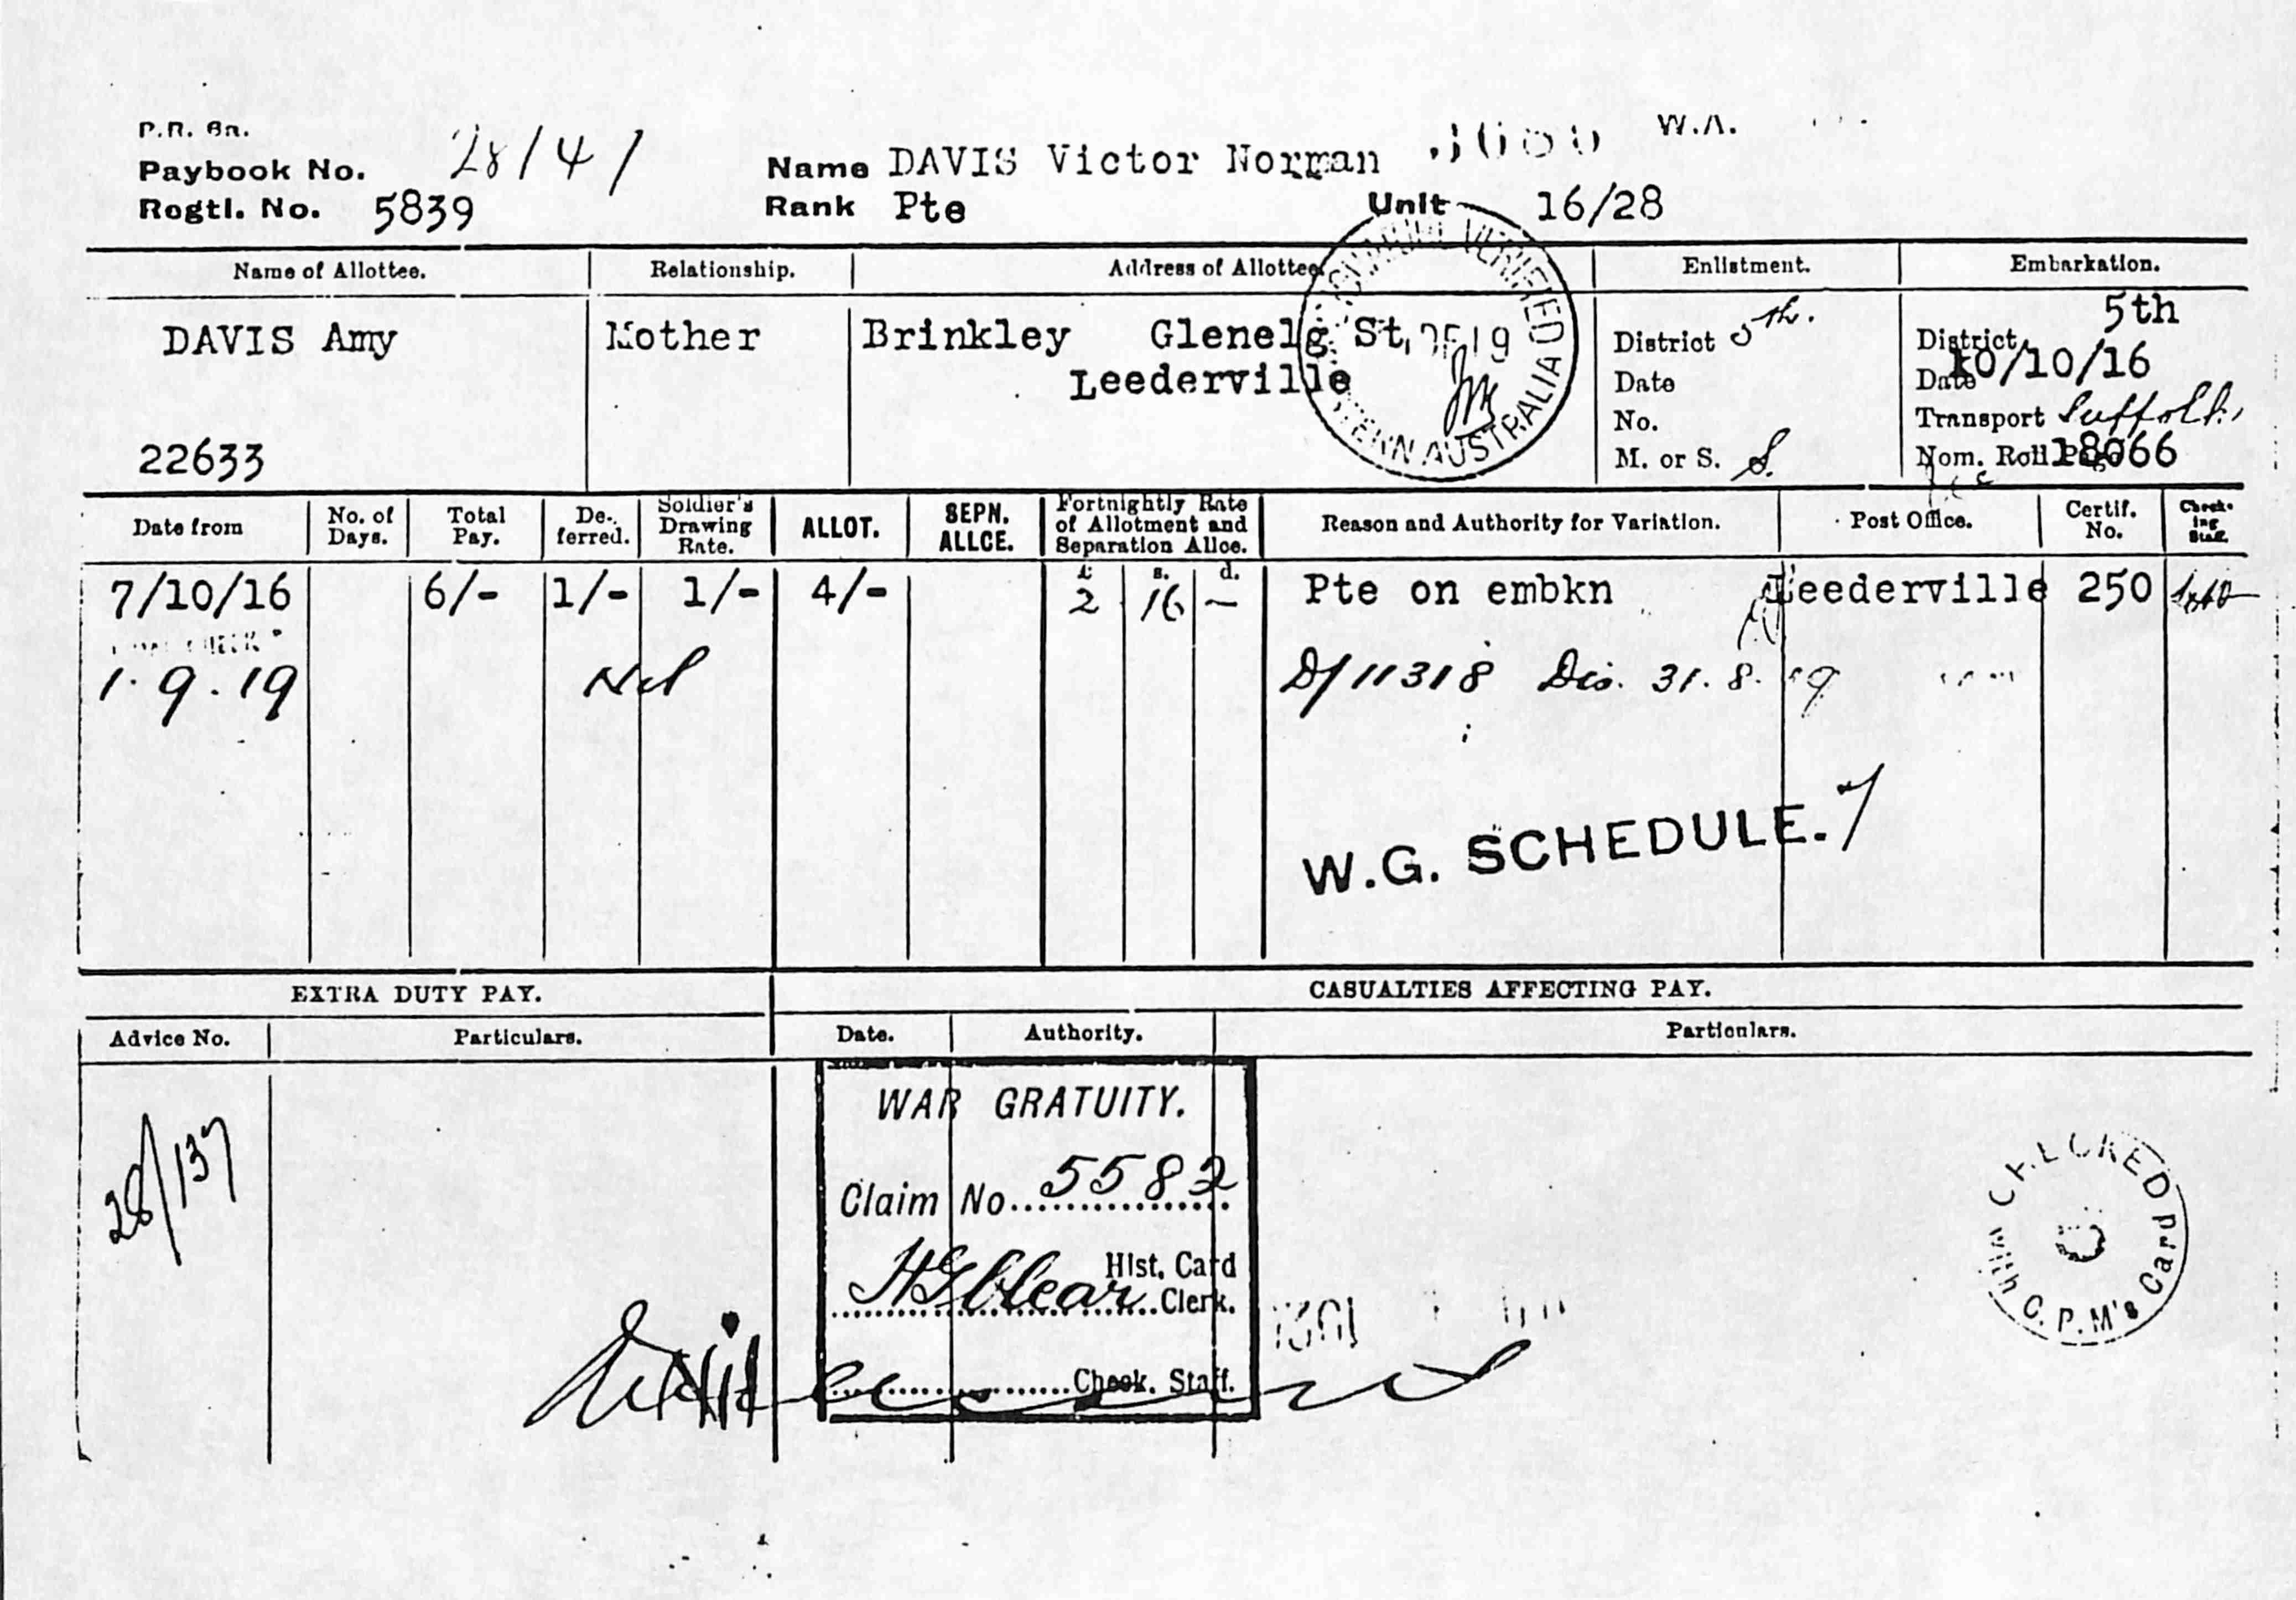 P.R. 6a.
Paybook No. 28/41 Name DAVIS Victor Norman W.A.
Regtl. No. 5839 Rank Pte Unit 16/28
Name of Allottee. Relationship. Address of Allottee. Enlistment. Embarkation.
DAVIS Amy Mother Brinkley Glenelg St, District 5th. District 5th
Leederville Date Date 10/10/16
No. Transport Suffolk
22633 M. or S. S. Nom. Roll Page 18066
VERIFIED
WESTERN AUSTRALIA
Date from No. of Days. Total Pay. De-ferred. Soldier's Drawing Rate. ALLOT. SEPN. ALLCE. Fortnightly Rate of Allotment and Separation Allce. Reason and Authority for Variation. Post Office. Certif. No. Check-ing Staff.
£ s. d.
7/10/16 6/- 1/- 1/- 4/- 2 16 — Pte on embkn Leederville 250
1.9.19 Nil D/11318 Dis. 31.8.19
W.G. SCHEDULE. 7
EXTRA DUTY PAY. CASUALTIES AFFECTING PAY.
Advice No. Particulars. Date. Authority. Particulars.
28/137
WAR GRATUITY.
Claim No. 5582
Hist. Card
Clerk.
Check. Staff.
Nil
CHECKED
with C.P.M's Card